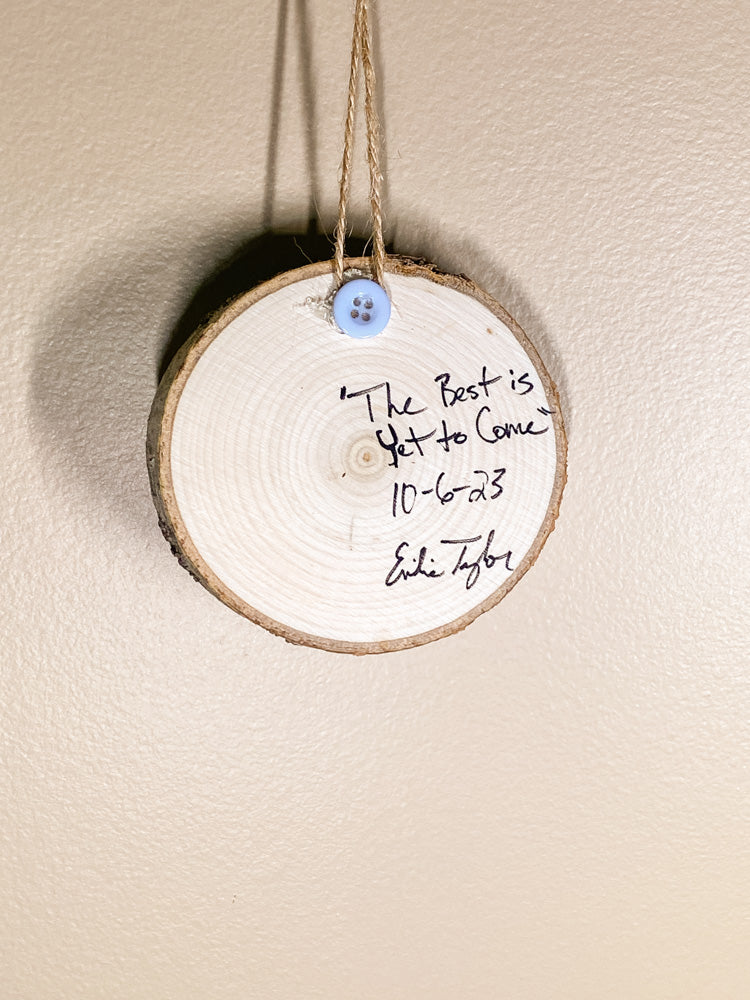 "The Best is
Yet to Come"
10-6-23
Emilie Taylor